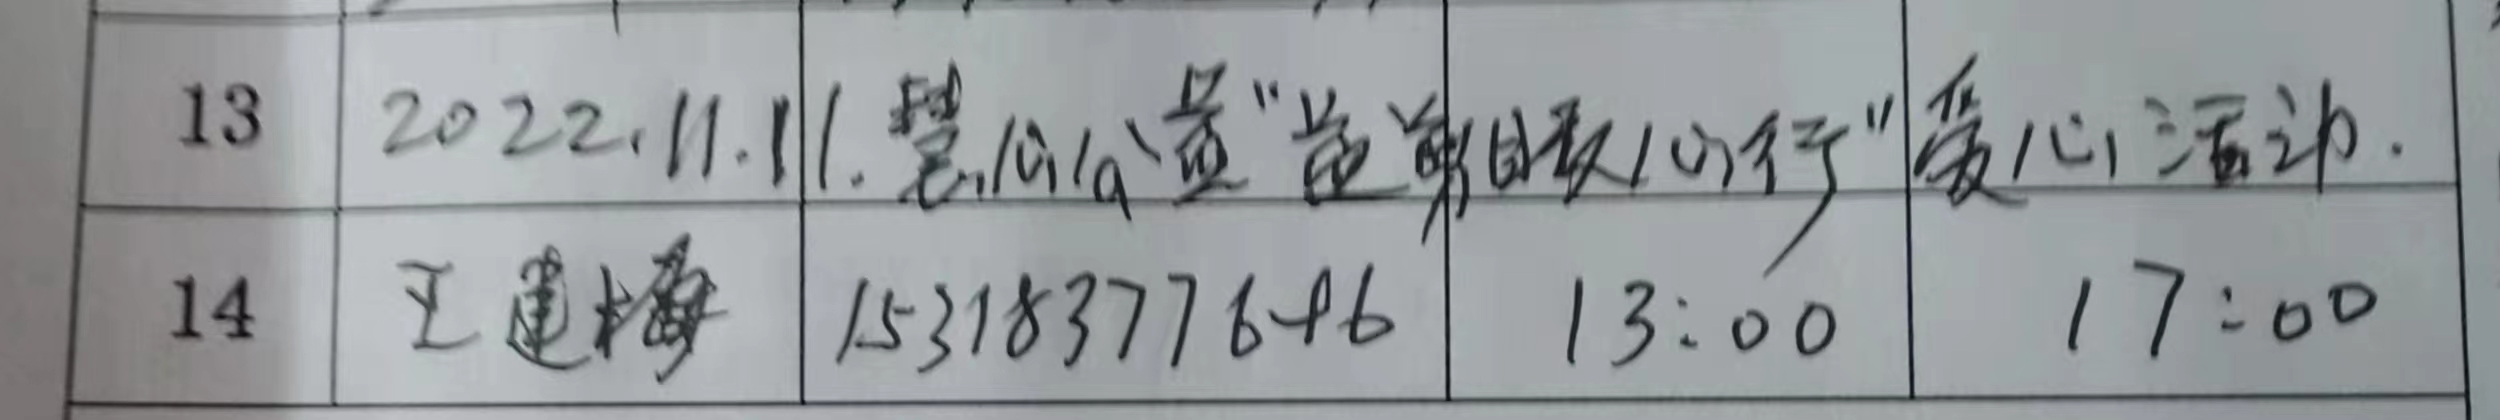 13 2022.11.11.慧心公益"益剪暖心行"爱心活动.
14 王建梅 15318377646 13:00 17:00